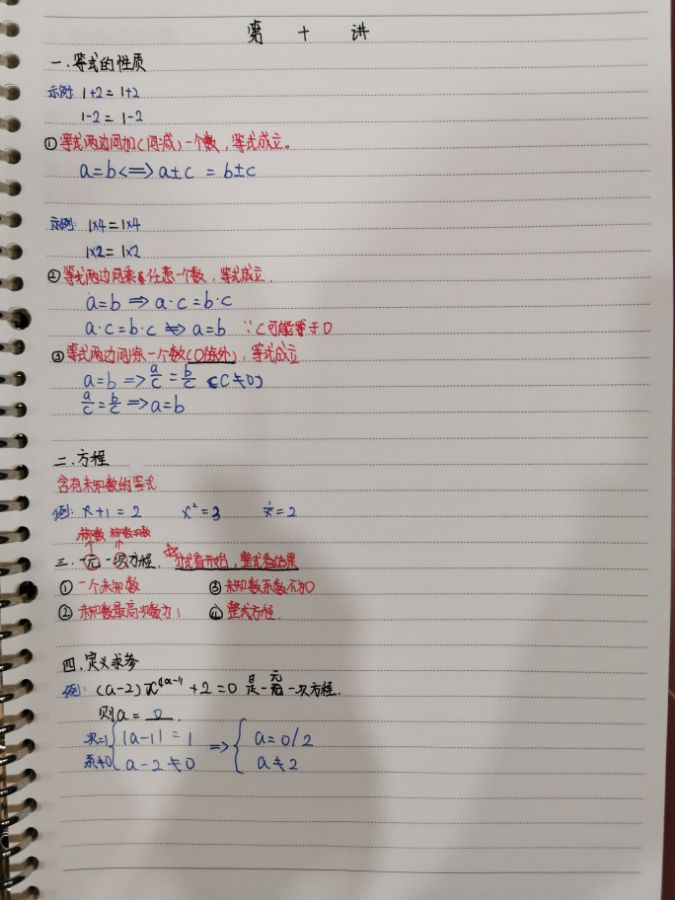 第 十 讲
一.等式的性质
示例: 1+2=1+2
1-2=1-2
①等式两边同加(同减)一个数,等式成立。
a=b<=>a±c = b±c
示例: 1×4=1×4
1×2=1×2
②等式两边同乘任意一个数,等式成立.
a=b ⇒ a·c=b·c
a·c=b·c ⇏ a=b ∵C可能等于0
③等式两边同除一个数(0除外),等式成立
a=b ⇒ a/c = b/c (C≠0)
a/c = b/c ⇒ a=b
二.方程
含有未知数的等式
例: x+1=2 x²=3 1/x=2
未知数 未知数次数
三.一元一次方程. ☆分式看开始,整式看结果
①一个未知数 ③未知数系数不为0
②未知数最高次数为1 ④整式方程.
四.定义求参
例: (a-2)x^|a-1| +2=0 是一元一次方程.
则a= 0 .
次=1 |a-1|=1 ⇒ a=0/2
系≠0 a-2≠0 a≠2